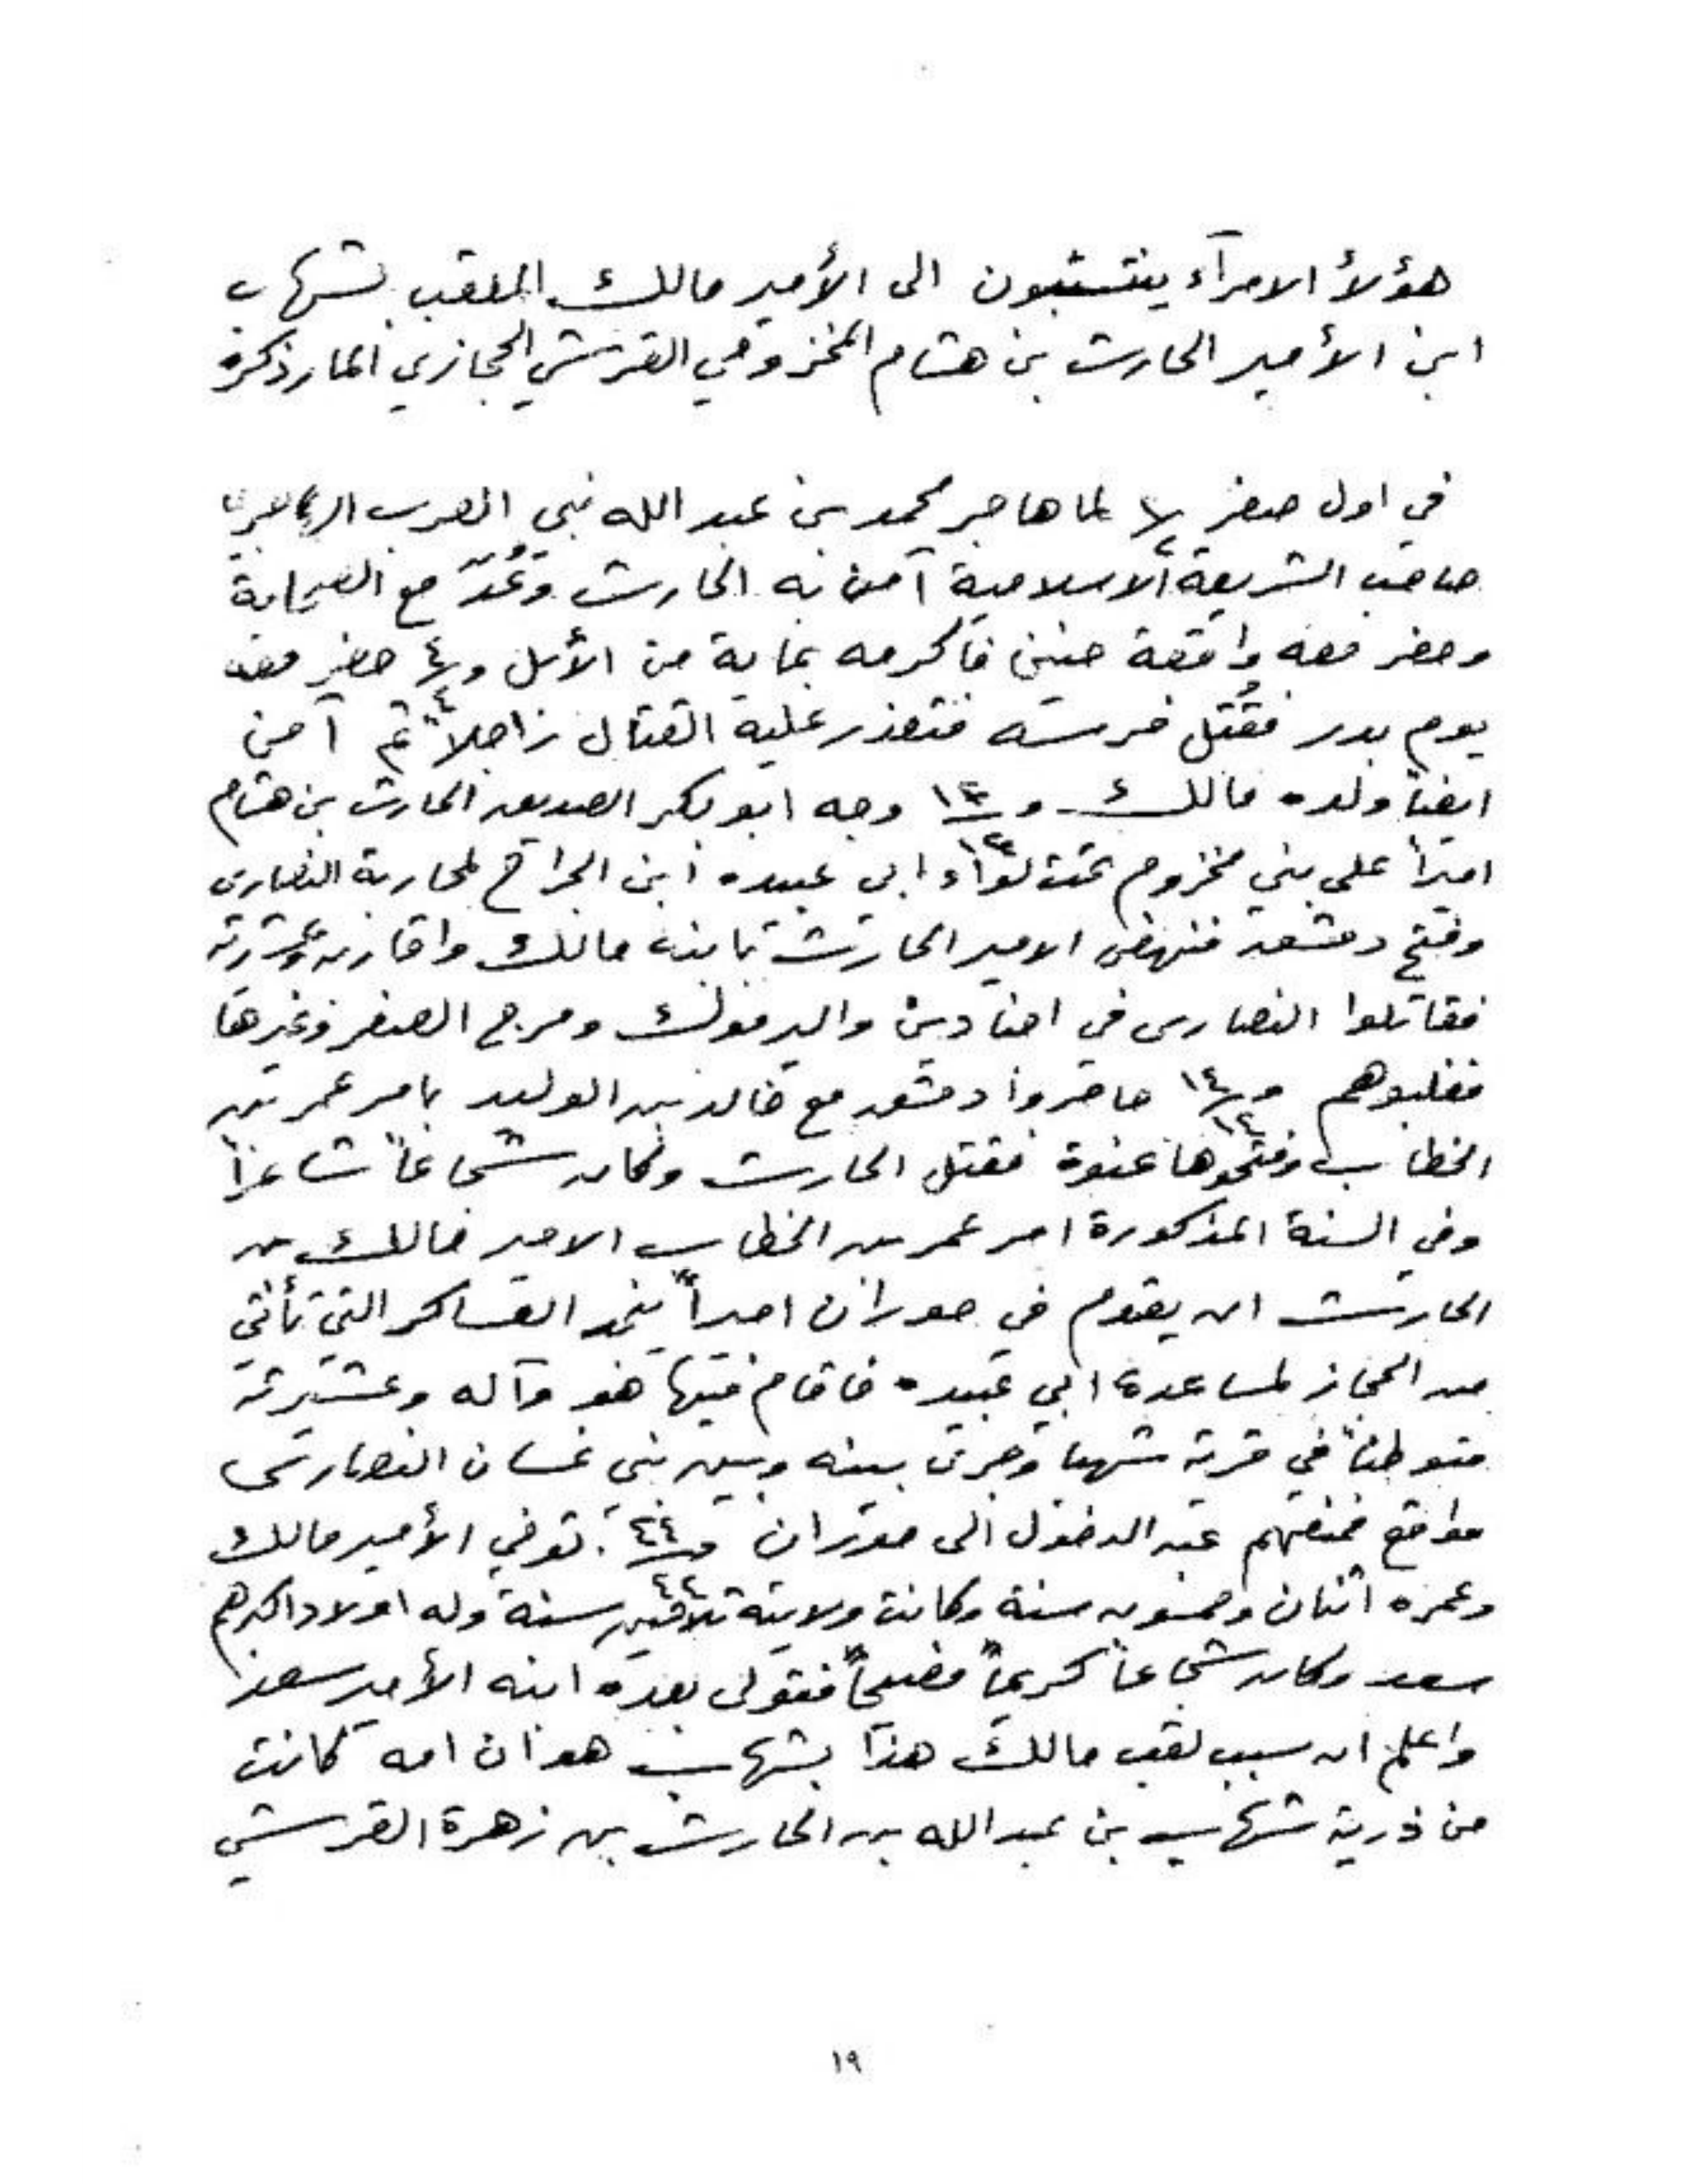 هؤلأ الامرآء ينتسبون الى الأمير مالك الملقب بشهاب
ابن الأمير الحارث بن هشام المخزومي القرشي الحجازي المار ذكره
في اول صفر لما هاجر محمد بن عبد الله نبي العرب
صاحب الشريعة الاسلامية آمن به الحارث وعُدّ مع الصحابة
وحضر معه واقعة حنين فأكرمه بماية من الأبل و حضر معه
يوم بدر فقُتل فرسه فتعذر عليه القتال راجلاً ثم آمن
ايضاً ولده مالك و وجه ابو بكر الصديق الحارث بن هشام
اميراً على بني مخزوم تحت لوآء ابي عبيده ابن الجراح لمحاربة النصارى
وفتح دمشق فنهض الامير الحارث بابنه مالك واقاربه وعشيرته
فقاتلوا النصارى في اجنادين واليرموك ومرج الصفر وغيرها
فغلبوهم و١٤ حاصروا دمشق مع خالد بن الوليد بامر عمر بن
الخطاب وفتحوها عنوة فقتل الحارث وكان شجاعاً شاعراً
وفي السنة المذكورة امر عمر بن الخطاب الامير مالك بن
الحارث ان يقوم في حوران اميراً ينجد العساكر التي تأتي
من الحجاز لمساعدة ابي عبيده فاقام فيها هو وآله وعشيرته
متوطناً في قرية شهبا وجرى بينه وبين بني غسان النصارى
مواقع فمنعهم عن الدخول الى حوران و٤٤ توفي الأمير مالك
وعمره اثنان وخمسون سنة وكانت ولايته ثلاثين سنة وله اولاد اكبرهم
سعد وكان شجاعاً كريماً فصيحاً فتولى بعده ابنه الأمير سعد
واعلم ان سبب لقب مالك هذا بشهاب هو ان امه كانت
من ذرية شهاب بن عبد الله بن الحارث بن زهرة القرشي
١٩